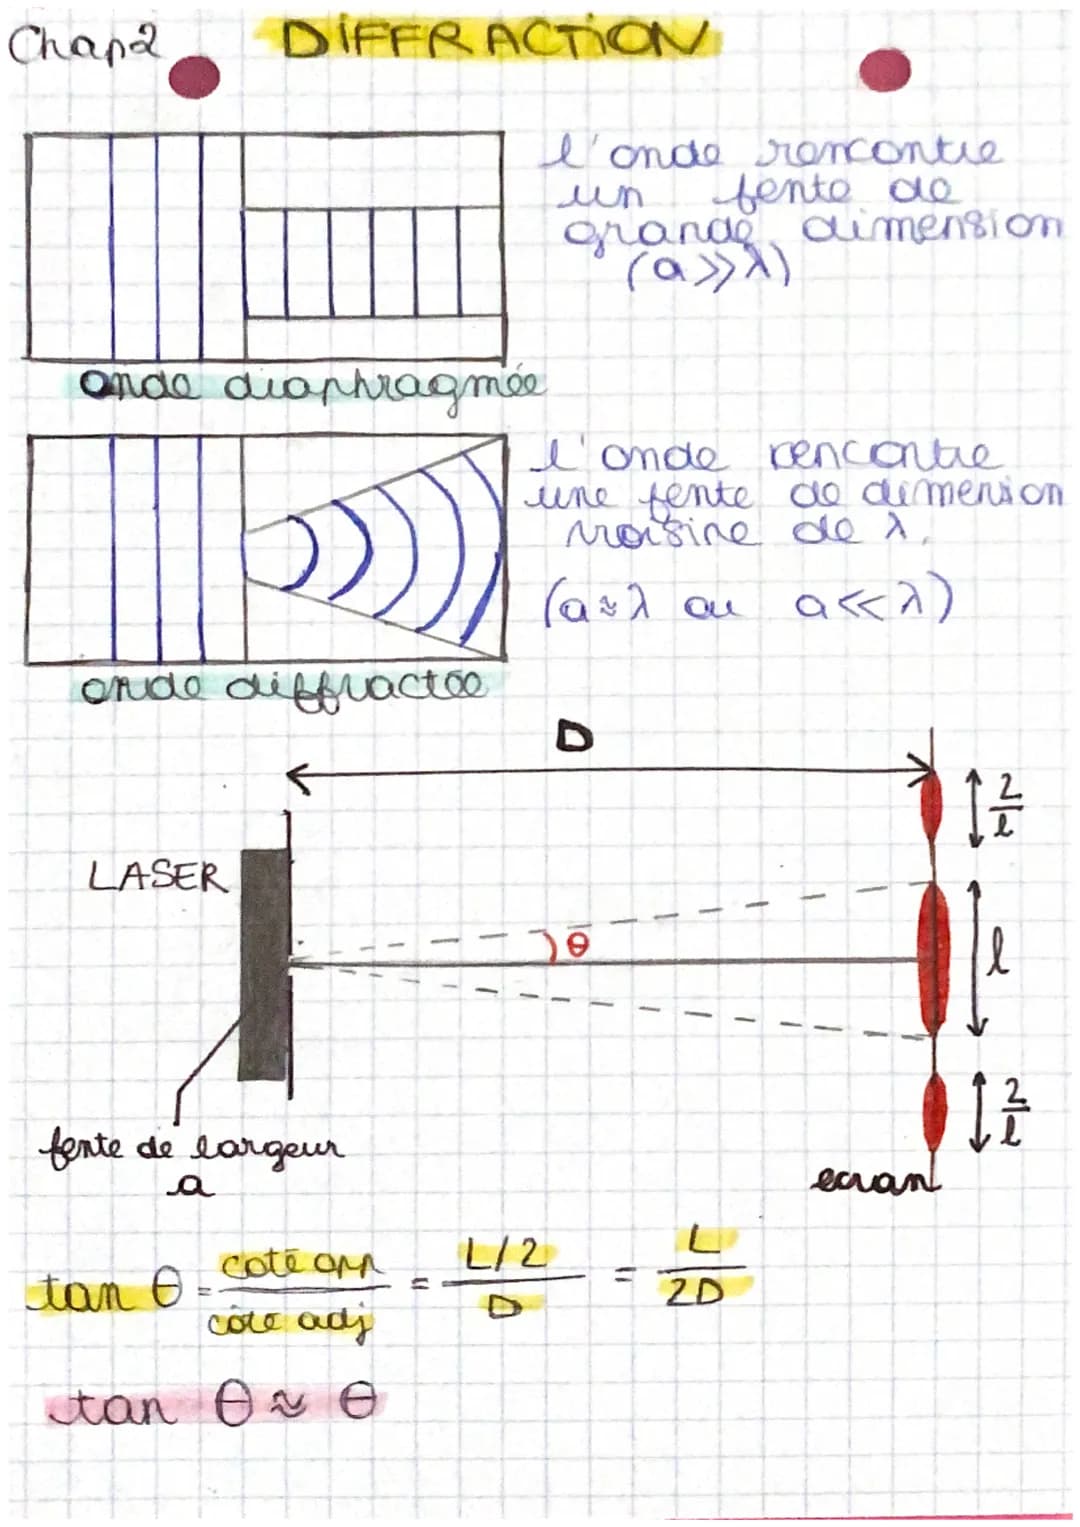 Chap2 DIFFRACTION
l'onde rencontre
un fente de
grande dimension
(a >> λ)
onde diaphragmée
l'onde rencontre
une fente de dimension
voisine de λ.
(a ≈ λ ou a << λ)
onde diffractée
D
2/l
LASER
θ
l
2/l
fente de largeur
a
ecran
tan θ = coté opp / côté adj = L/2 / D = L / 2D
tan θ ≈ θ